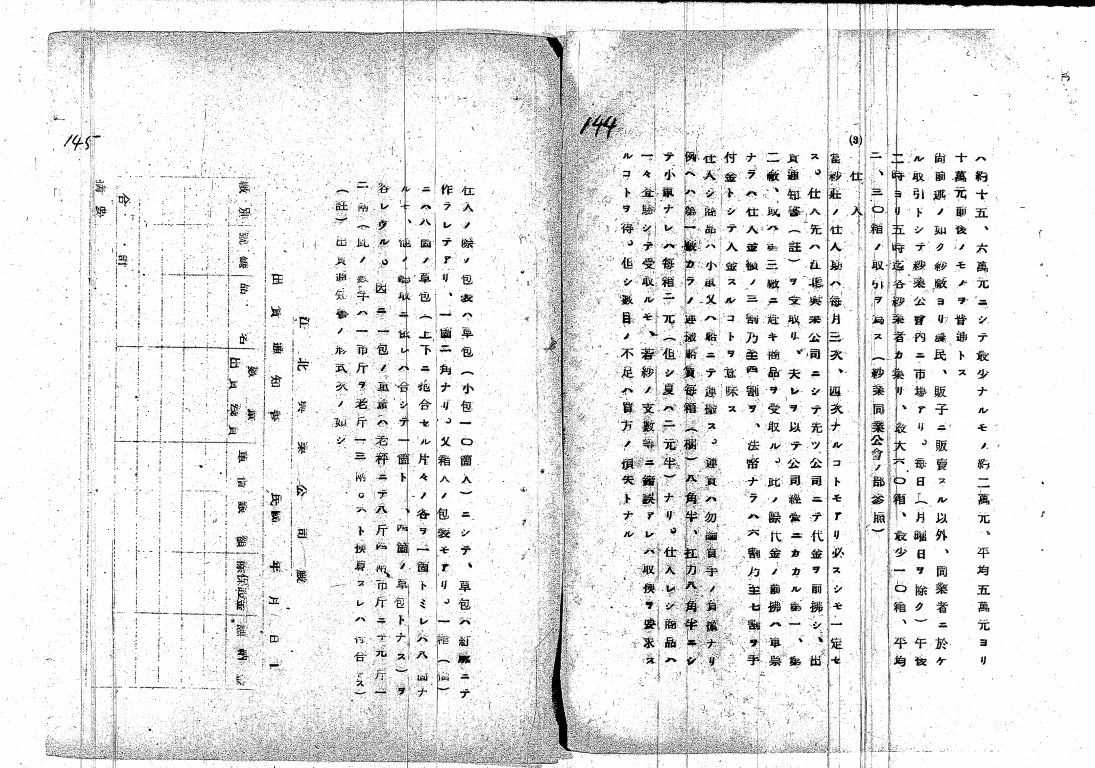 144
ハ約十五、六萬元ニシテ最少ナルモノ約二萬元、平均五萬元ヨリ
十萬元前後ノモノヲ普通トス
尚前述ノ如ク紗廠ヨリ農民、販子ニ販賣スル以外、同業者ニ於ケ
ル取引トシテ紗業公會內ニ市場アリ。每日（月曜日ヲ除ク）午後
二時ヨリ五時迄各紗業者カ集リ、最大六〇箱、最少一〇箱、平均
二、三〇箱ノ取引ヲ爲ス（紗業同業公會ノ部參照）
(3) 仕入
當紗莊ノ仕入期ハ每月三次、四次ナルコトモアリ必スシモ一定セ
ス。仕入先ハ江北興業公司ニシテ先ツ公司ニテ代金ヲ前拂シ、出
貨通知書（註）ヲ受取リ、夫レヲ以テ公司經營ニカカル第一、第
二廠、又ハ第三廠ニ赴キ商品ヲ受取ル。此ノ際代金ノ前拂ハ軍票
ナラハ仕入金額ノ三割乃至四割ヲ、法幣ナラハ六割乃至七割ヲ手
付金トシテ入金スルコトヲ意味ス
仕入シ商品ハ小車又ハ船ニテ運搬ス。運賃ハ勿論買手ノ負擔ナリ
例ヘハ第一廠カラノ運搬船賃每箱（梱）八角半、扛力八角半ニシ
テ小車ナレハ每箱二元（但シ夏ハ二元半）ナリ。仕入レシ商品ハ
一々點驗シテ受取ルモ、若紗ノ支數等ニ錯誤アレハ取換ヲ要求ス
ルコトヲ得。但シ數目ノ不足ハ買方ノ損失トナル
145
仕入ノ際ノ包裝ハ草包（小包一〇箇入）ニシテ、草包ハ紅麻ニテ
作ラレテアリ、一箇二角ナリ。又箱入ノ包裝モアリ。一箱（箇）
ニハ八箇ノ草包（上下ニ抱合セル片々ノ各ヲ一箇トミレハ八箇ナ
ルモ、他ノ取ニ依レハ合シテ一箇ト、四箇ノ草包トナス）ヲ
容レウル。因ニ一包ノ重量ハ老秤ニテ八斤四兩市斤ニテ九斤一
二兩（此ノ數字ハ一市斤ヲ老斤一三兩。ハト換算スレハ符合ス）
（註）出貨通知書ノ形式次ノ如シ
江北興業公司廠
出貨通知書 民國 年 月 日
廠別 號 品名 數
出貨 數量
單價
合計